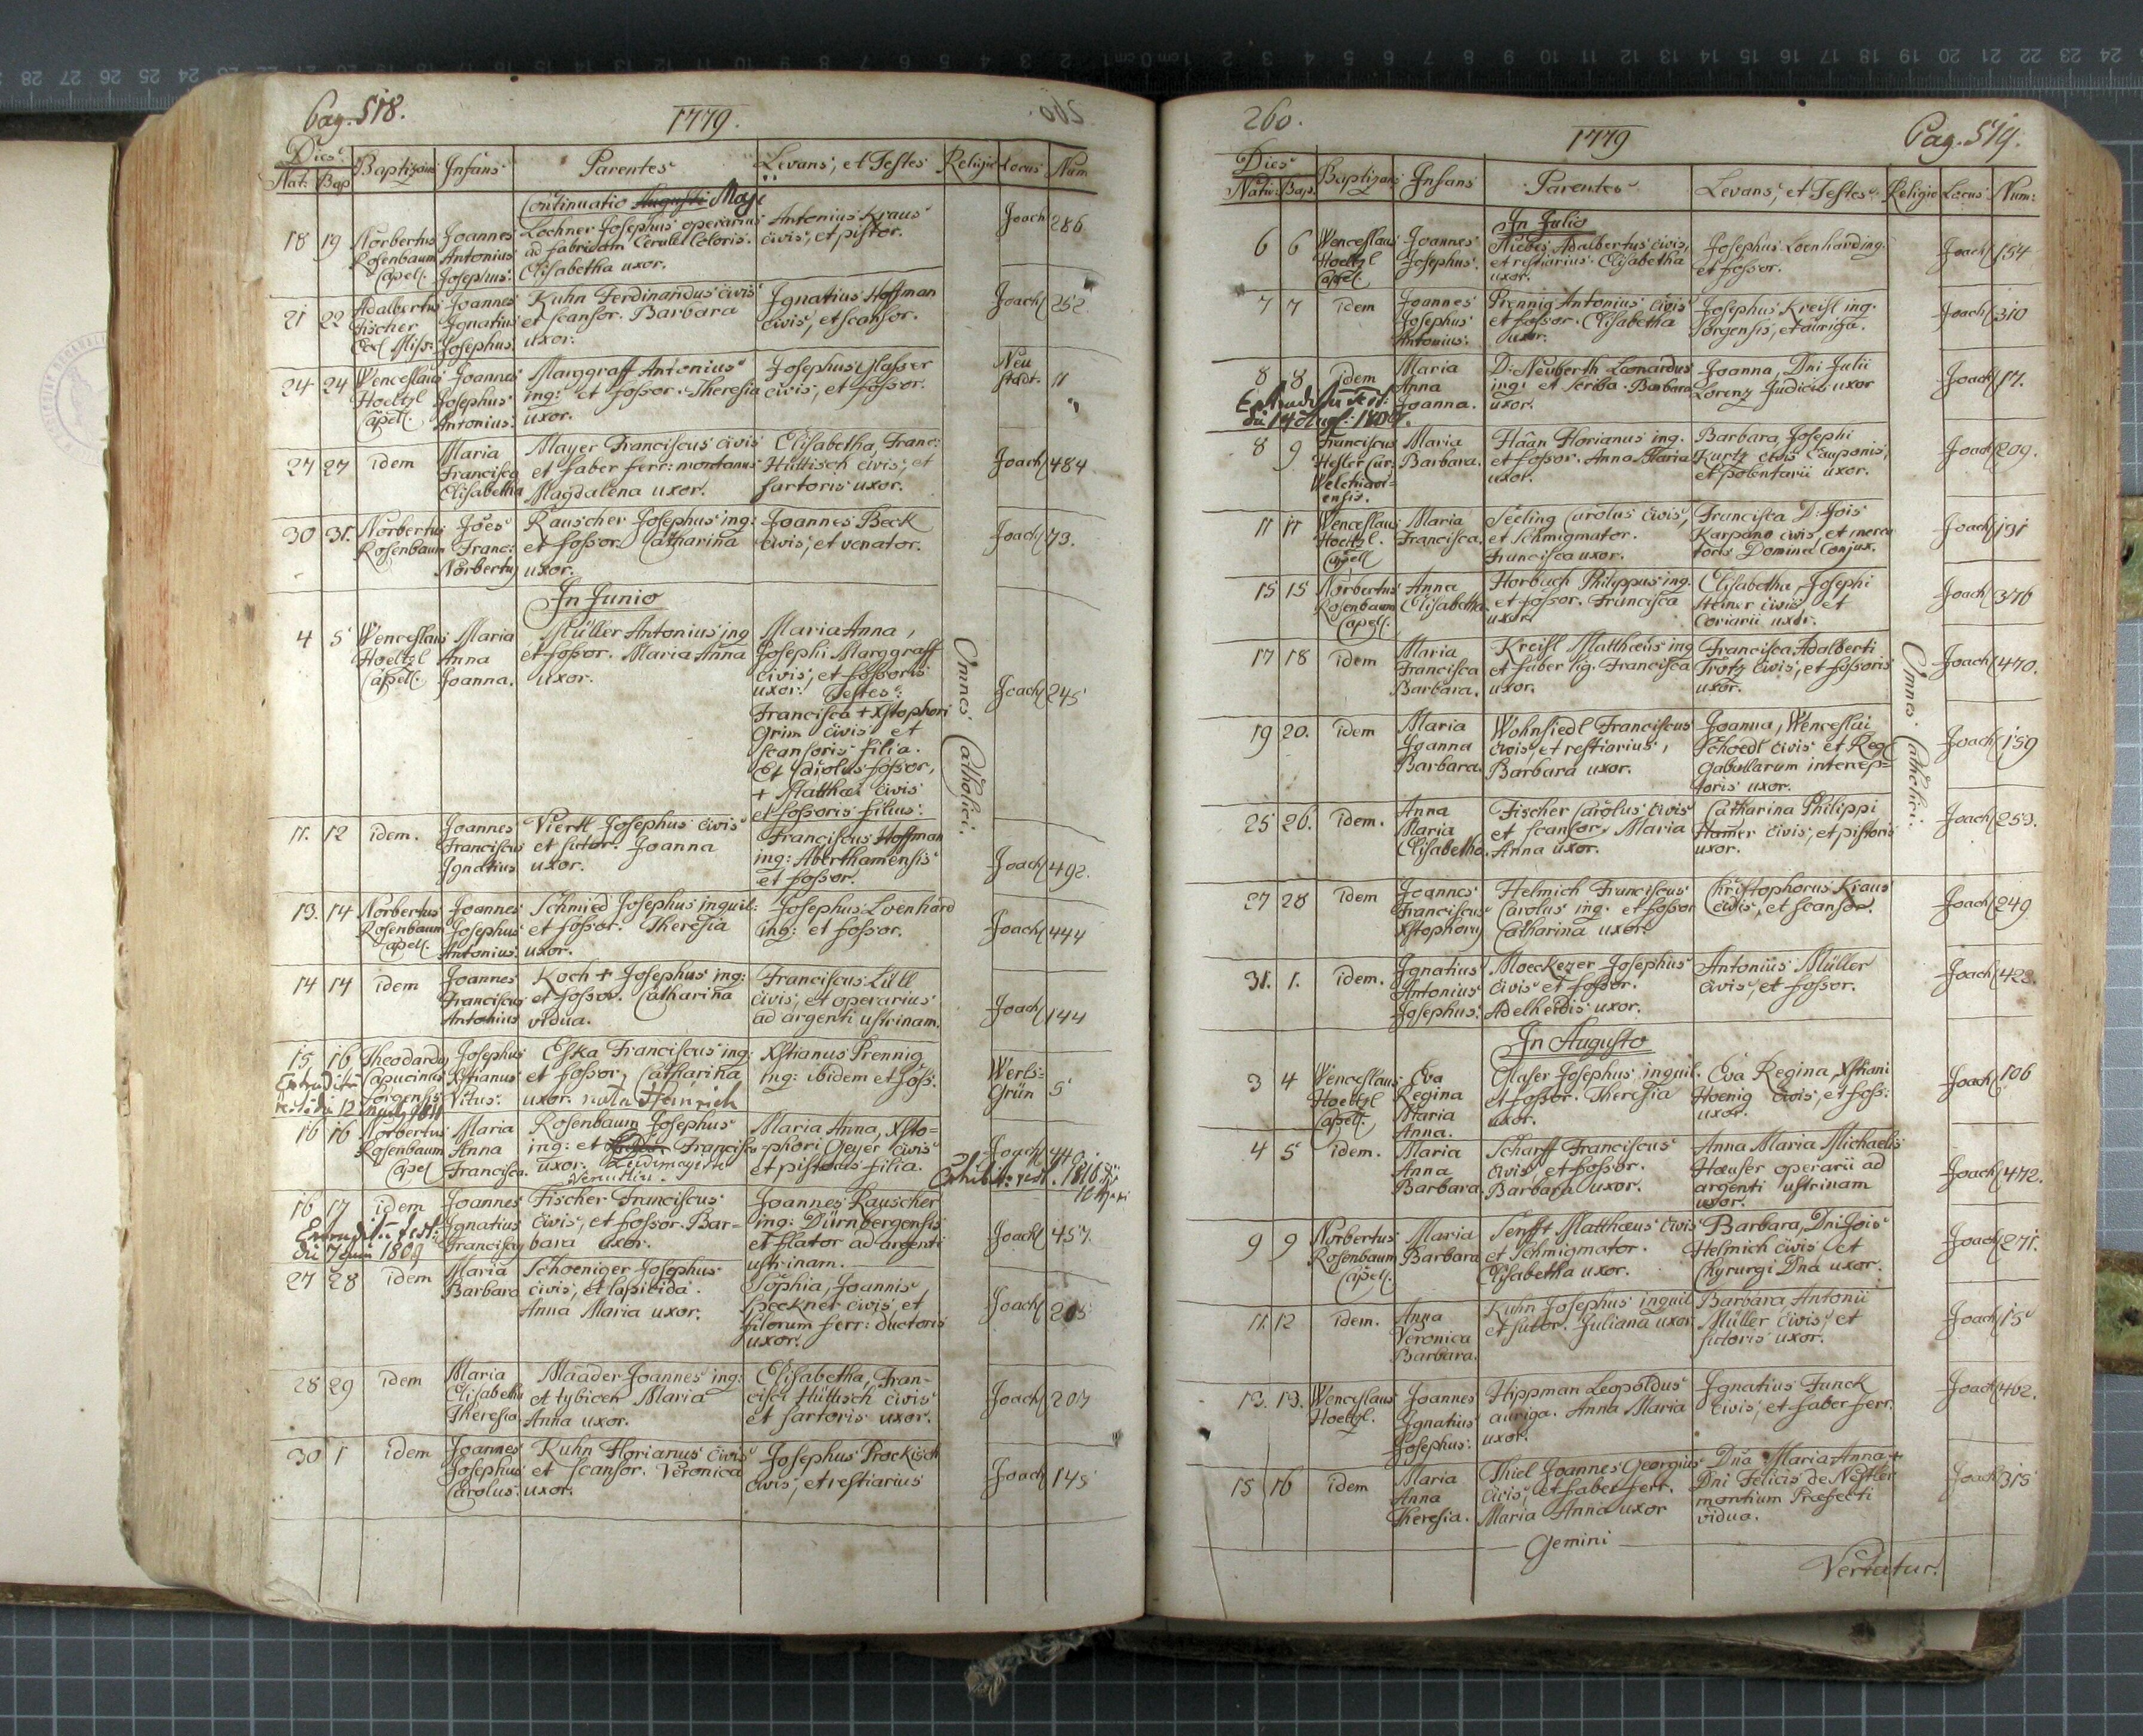 Pag. 518.
1779.
Dies
Nat: Bap
Baptizans Infans Parentes Levans, et Testes Religio Locus Num
Continuatio Augusti Maji
18 19 Norbertus Joannes Lochner Josephus operarius Antonius Kraus Joach 286
Rosenbaum Antonius ad fabricam Cerulei Coloris. civis, et pistor.
Capell. Josephus. Elisabetha uxor.
21 22 Adalbertus Joannes Kuhn Ferdinandus civis Ignatius Hoffman Joach 252
Fischer Ignatius et scansor. Barbara civis, et scansor.
Miss: Josephus. uxor.
24 24 Wenceslaus Joannes Marggraff Antonius Josephus Glasser Neu 11
Hoeltzl Josephus ing: et fossor. Theresia civis, et fossor. stadt.
Capell. Antonius. uxor.
27 27 idem Maria Mayer Franciscus civis Elisabetha, Franc: Joach 484
Francisca et faber ferr: montanus Hüttisch civis, et
Elisabetha Magdalena uxor. sartoris uxor.
30 31. Norbertus Joes Rauscher Josephus ing: Joannes Beck Joach 73.
Rosenbaum Franc: et fossor. Catharina civis, et venator.
Norbertus uxor.
In Junio
4 5 Wenceslaus Maria Müller Antonius ing Maria Anna, Joach 245
Hoeltzl Anna et fossor. Maria Anna Josephi Marggraff
Capell. Joanna. uxor. civis, et fossoris
uxor. Testes:
Francisca + Xstophori
Grim civis et
scansoris filia.
Et fossor,
+ Matthaei civis
et fossoris filius.
Omnes Catholici.
11. 12 idem. Joannes Viertl Josephus civis Franciscus Hoffman Joach 492.
Franciscus et sutor. Joanna ing: Aberthamensis
Ignatius uxor. et fossor.
13. 14 Norbertus Joannes Schmied Josephus inquil: Josephus Loenhard Joach 444
Rosenbaum Josephus et fossor. Theresia ing: et fossor.
Capell. Antonius. uxor.
14 14 idem Joannes Koch + Josephus ing: Franciscus Lill Joach 144
Franciscus et fossor. Catharina civis, et operarius
Antonius vidua. ad argenti ustrinam.
15 16 Theodardus Josephus Eska Franciscus ing: Xstianus Prennig Werls= 5
Capucinus Xstianus et fossor, Catharina ing: ibidem et foss: Grün
Sorgensis Vitus. uxor. nata Heinrich
16 16 Norbertus Maria Rosenbaum Josephus Maria Anna, Xsto= Joach 440
Rosenbaum Anna ing: et Francisca phori Geyer civis
Capel Francisca. uxor. et pistoris filia.
16 17 idem Joannes Fischer Franciscus Joannes Rauscher Joach 457.
Ignatius civis, et fossor. Bar= ing: Dürnbergensis
Franciscus bara uxor. et flator ad argenti
ustrinam.
27 28 idem Maria Schoeniger Josephus Sophia, Joannis Joach 205
Barbara civis, et lapicida. Speckner civis, et
Anna Maria uxor. filorum ferr: ductoris
uxor.
28 29 idem Maria Maader Joannes ing: Elisabetha, Fran= Joach 207
Elisabetha et tybicen Maria cisci Hüttisch civis
Theresia Anna uxor. et sartoris uxor.
30 1 idem Joannes Kuhn Florianus civis Josephus Prockisch Joach 145
Josephus et scansor. Veronica civis, et restiarius
Carolus. uxor.
260.
1779
Pag. 519.
Dies
Nativ: Bap.
Baptizans Infans Parentes Levans, et Testes Religio Locus Num:
In Julio
6 6 Wenceslaus Joannes Adalbertus civis, Josephus Loenhard ing. Joach 154
Hoeltzl Josephus. et restiarius. Elisabetha et fossor.
Capel. uxor.
7 7 idem Joannes Prennig Antonius civis Josephus Kreisl ing. Joach 310
Josephus et fossor. Elisabetha Sorgensis, et auriga.
Antonius. uxor.
8 8 idem Maria D. Neuberth Leonardus Joanna, Dni Julii Joach 17.
Anna ing: et scriba. Barbara Lorenz Judicis uxor
Joanna. uxor.
8 9 Franciscus Maria Haan Florianus ing. Barbara, Josephi Joach 209.
Hesler Cur: Barbara. et fossor. Anna Maria Kurtz civis Cauponis,
uxor. et polentarii uxor.
ensis.
11 11 Wenceslaus Maria Seeling Carolus civis, Francisca D. Jois Joach 131
Hoeltzl. Francisca. et Schmigmator. Karpano civis, et merca
Capell Francisca uxor. toris Domina Conjux.
15 15 Norbertus Anna Horbach Philippus ing. Elisabetha Josephi Joach 376
Rosenbaum Elisabetha. et fossor. Francisca Steiner civis, et
Capell. uxor. Coriarii uxor.
17 18 idem Maria Kreisl Matthaeus ing Francisca, Adalberti Joach 470.
Francisca et faber lig. Francisca Trötz civis, et fossoris
Barbara. uxor. uxor.
19 20. idem Maria Wohnsiedl Franciscus Joanna, Wenceslai Joach 159
Joanna civis et restiarius, Schoedl civis et Reg:
Barbara. Barbara uxor. Gabellarum intercep=
toris uxor.
Omnes Catholici.
25 26. idem. Anna Fischer Carolus civis Catharina Philippi Joach 253.
Maria et scansor, Maria Hamer civis, et pistoris
Elisabetha. Anna uxor. uxor.
27 28 idem Joannes Helmich Franciscus Christophorus Kraus Joach 249
Franciscus Carolus ing. et fossor civis, et scansor.
Xstophorus Catharina uxor.
31. 1. idem. Ignatius Moeckezer Josephus Antonius Müller Joach 422.
Antonius civis et fossor. civis, et fossor.
Josephus. Adelheidis uxor.
In Augusto
3 4 Wenceslaus Eva Glaser Josephus inquil. Eva Regina, Xstiani Joach 106
Hoeltzl Regina et fossor. Theresia Hoenig civis, et foss:
Capell. Maria uxor. uxor.
Anna.
4 5 idem. Maria Scharff Franciscus Anna Maria Michaelis Joach 472.
Anna civis et fossor. Haeuser operarii ad
Barbara. Barbara uxor. argenti ustrinam
uxor.
9 9 Norbertus Maria Senfft Matthaeus civis Barbara, Dni Jois Joach 271.
Rosenbaum Barbara et Schmigmator. Helmich civis et
Capell. Elisabetha uxor. Chyrurgi Dna uxor.
11 12 idem. Anna Kuhn Josephus inquil Barbara, Antonii Joach 15
Veronica et sutor. Juliana uxor Müller civis, et
Barbara. sutoris uxor.
13. 13. Wenceslaus Joannes Hippman Leopoldus Ignatius Funck Joach 462.
Hoeltzl. Ignatius auriga. Anna Maria civis, et faber ferr.
Josephus. uxor.
15 16 idem Maria Thiel Joannes Georgius Dna Maria Anna + Joach 315
Anna civis, et faber ferr. Dni Felicis de
Theresia. Maria Anna uxor montium Praefecti
vidua.
Gemini
Vertatur.